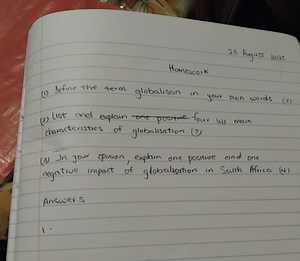 25 August 2025
Homework
(1) Define the term globalisation in your own words (2)
(2) List and explain one positive four main
characteristics of globalisation (3)
(3) In your opinion, explain one positive and one
negative impact of globalisation in South Africa (4)
Answers
1.